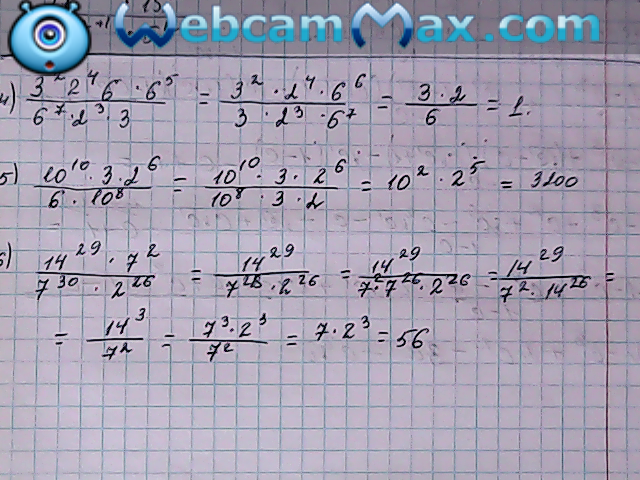 WebcamMax.com
4) 3² 2⁴ 6 · 6⁵ / 6⁷ · 2³ · 3 = 3² · 2⁴ · 6⁶ / 3 · 2³ · 6⁷ = 3 · 2 / 6 = 1.
5) 10¹⁰ · 3 · 2⁶ / 6 · 10⁸ = 10¹⁰ · 3 · 2⁶ / 10⁸ · 3 · 2 = 10² · 2⁵ = 3200
6) 14²⁹ · 7² / 7³⁰ · 2²⁶ = 14²⁹ / 7²⁸ · 2²⁶ = 14²⁹ / 7² · 7²⁶ · 2²⁶ = 14²⁹ / 7² · 14²⁶ =
= 14³ / 7² = 7³ · 2³ / 7² = 7 · 2³ = 56